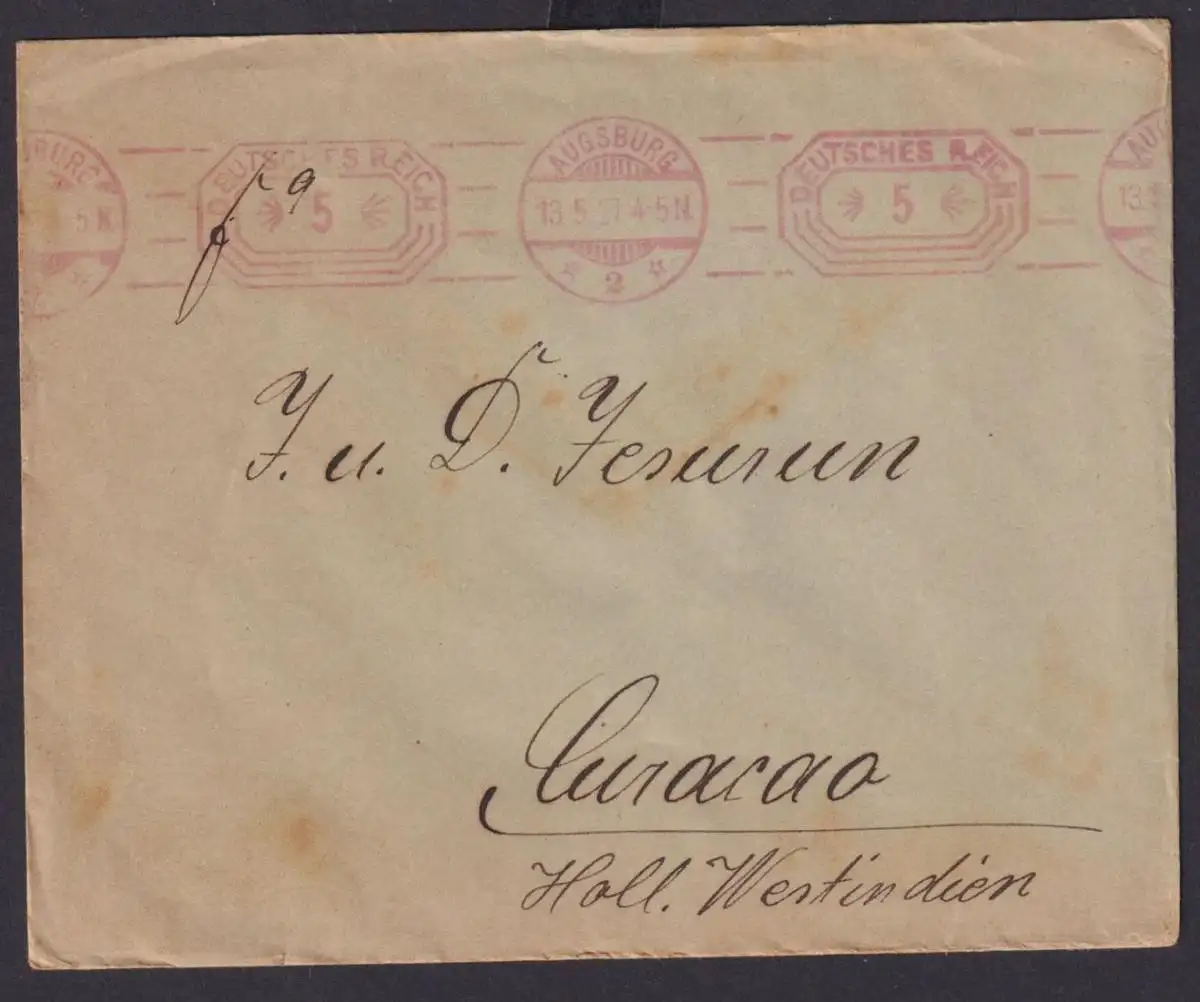 BURG
5 N.
DEUTSCHES REICH
5
AUGSBURG
13.5.27 4-5 N.
2
DEUTSCHES REICH
5
AU
13.5
J. u. D. Jesurun
Curacao
Holl. Westindien